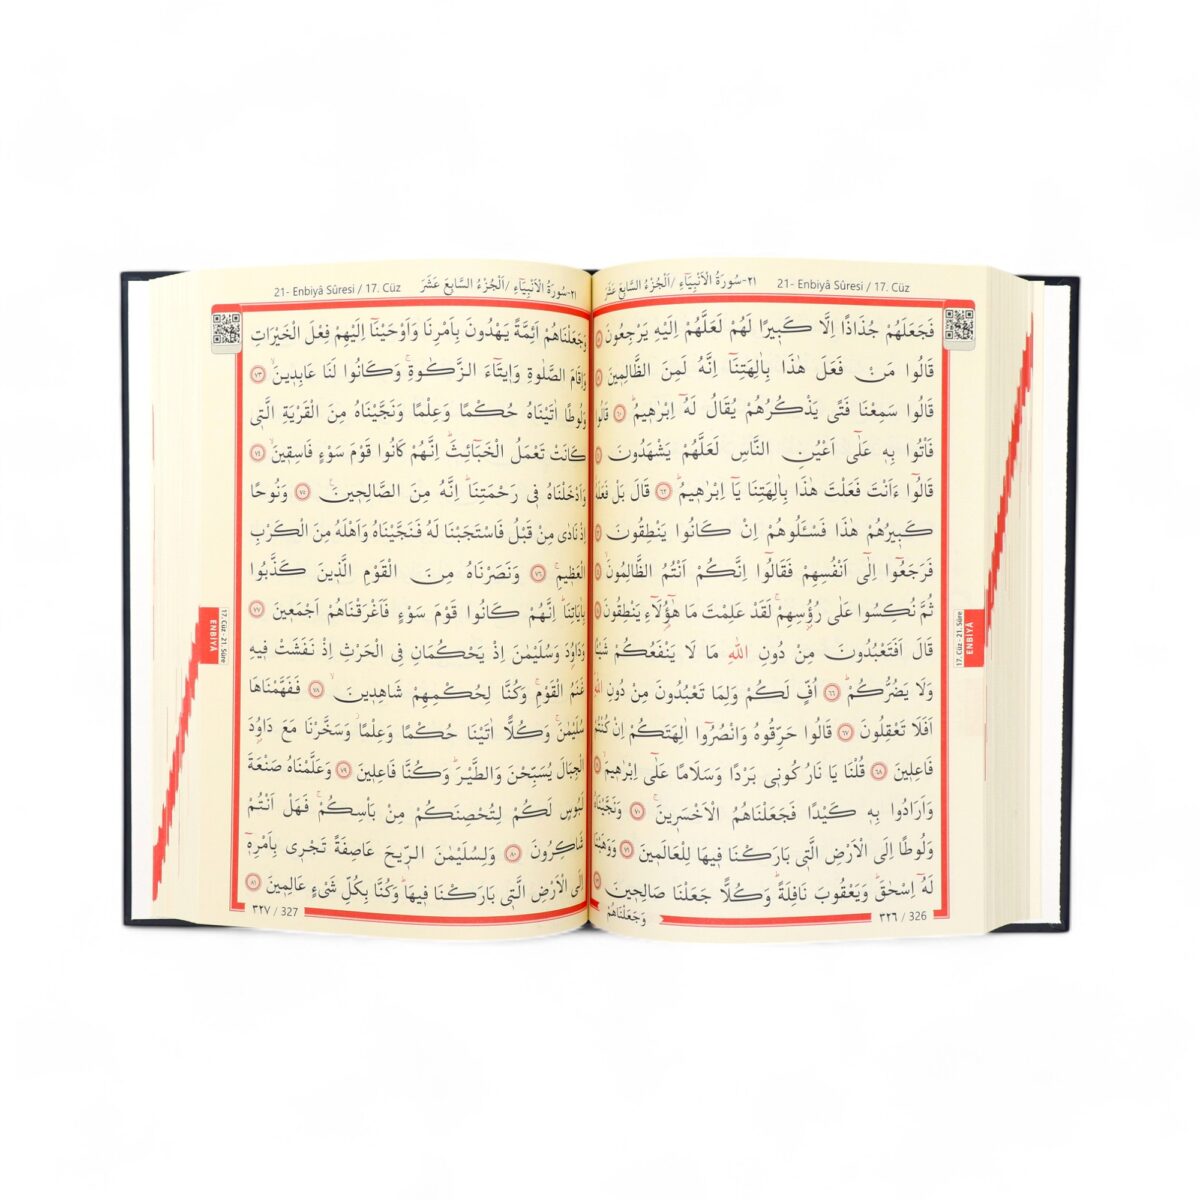 ٢١-سُورَةُ الْاَنْبِيَٓاءِ /اَلْجُزْءُ السَّابِعَ عَشَرَ
21- Enbiyâ Sûresi / 17. Cüz
فَجَعَلَهُمْ جُذَاذًا اِلَّا كَب۪يرًا لَهُمْ لَعَلَّهُمْ اِلَيْهِ يَرْجِعُونَ
قَالُوا مَنْ فَعَلَ هٰذَا بِاٰلِهَتِنَٓا اِنَّهُ لَمِنَ الظَّالِم۪ينَ
قَالُوا سَمِعْنَا فَتًى يَذْكُرُهُمْ يُقَالُ لَهُٓ اِبْرٰه۪يمُۜ ﴿٦٠﴾ قَالُوا
فَأْتُوا بِه۪ عَلٰٓى اَعْيُنِ النَّاسِ لَعَلَّهُمْ يَشْهَدُونَ
قَالُٓوا ءَاَنْتَ فَعَلْتَ هٰذَا بِاٰلِهَتِنَا يَٓا اِبْرٰه۪يمُۜ ﴿٦٢﴾ قَالَ بَلْ فَعَلَهُ
كَب۪يرُهُمْ هٰذَا فَسْـَٔلُوهُمْ اِنْ كَانُوا يَنْطِقُونَ
فَرَجَعُٓوا اِلٰٓى اَنْفُسِهِمْ فَقَالُٓوا اِنَّكُمْ اَنْتُمُ الظَّالِمُونَۙ
ثُمَّ نُكِسُوا عَلٰى رُؤُ۫سِهِمْۚ لَقَدْ عَلِمْتَ مَا هٰٓؤُ۬لَٓاءِ يَنْطِقُونَ
قَالَ اَفَتَعْبُدُونَ مِنْ دُونِ اللّٰهِ مَا لَا يَنْفَعُكُمْ شَيْـًٔا
وَلَا يَضُرُّكُمْۜ ﴿٦٦﴾ اُفٍّ لَكُمْ وَلِمَا تَعْبُدُونَ مِنْ دُونِ اللّٰهِ
اَفَلَا تَعْقِلُونَ ﴿٦٧﴾ قَالُوا حَرِّقُوهُ وَانْصُرُٓوا اٰلِهَتَكُمْ اِنْ كُنْتُمْ
فَاعِل۪ينَ ﴿٦٨﴾ قُلْنَا يَا نَارُ كُون۪ي بَرْدًا وَسَلَامًا عَلٰٓى اِبْرٰه۪يمَۙ
وَاَرَادُوا بِه۪ كَيْدًا فَجَعَلْنَاهُمُ الْاَخْسَر۪ينَۚ ﴿٧٠﴾ وَنَجَّيْنَاهُ
وَلُوطًا اِلَى الْاَرْضِ الَّت۪ي بَارَكْنَا ف۪يهَا لِلْعَالَم۪ينَ ﴿٧١﴾ وَوَهَبْنَا
لَهُٓ اِسْحٰقَۜ وَيَعْقُوبَ نَافِلَةًۜ وَكُلًّا جَعَلْنَا صَالِح۪ينَ
٣٢٦ / 326
وَجَعَلْنَاهُمْ
17. Cüz - 21. Sûre
ENBİYÂ
21- Enbiyâ Sûresi / 17. Cüz
٢١-سُورَةُ الْاَنْبِيَٓاءِ /اَلْجُزْءُ السَّابِعَ عَشَرَ
وَجَعَلْنَاهُمْ اَئِمَّةً يَهْدُونَ بِاَمْرِنَا وَاَوْحَيْنَٓا اِلَيْهِمْ فِعْلَ الْخَيْرَاتِ
وَاِقَامَ الصَّلٰوةِ وَا۪يتَٓاءَ الزَّكٰوةِۚ وَكَانُوا لَنَا عَابِد۪ينَۙ ﴿٧٣﴾
وَلُوطًا اٰتَيْنَاهُ حُكْمًا وَعِلْمًا وَنَجَّيْنَاهُ مِنَ الْقَرْيَةِ الَّت۪ي
كَانَتْ تَعْمَلُ الْخَبَٓائِثَۜ اِنَّهُمْ كَانُوا قَوْمَ سَوْءٍ فَاسِق۪ينَۙ ﴿٧٤﴾
وَاَدْخَلْنَاهُ ف۪ي رَحْمَتِنَاۜ اِنَّهُ مِنَ الصَّالِح۪ينَ۟ ﴿٧٥﴾ وَنُوحًا
اِذْ نَادٰى مِنْ قَبْلُ فَاسْتَجَبْنَا لَهُ فَنَجَّيْنَاهُ وَاَهْلَهُ مِنَ الْكَرْبِ
الْعَظ۪يمِۚ ﴿٧٦﴾ وَنَصَرْنَاهُ مِنَ الْقَوْمِ الَّذ۪ينَ كَذَّبُوا
بِاٰيَاتِنَاۜ اِنَّهُمْ كَانُوا قَوْمَ سَوْءٍ فَاَغْرَقْنَاهُمْ اَجْمَع۪ينَ ﴿٧٧﴾
وَدَاوُ۫دَ وَسُلَيْمٰنَ اِذْ يَحْكُمَانِ فِي الْحَرْثِ اِذْ نَفَشَتْ ف۪يهِ
غَنَمُ الْقَوْمِۚ وَكُنَّا لِحُكْمِهِمْ شَاهِد۪ينَۙ ﴿٧٨﴾ فَفَهَّمْنَاهَا
سُلَيْمٰنَۚ وَكُلًّا اٰتَيْنَا حُكْمًا وَعِلْمًاۘ وَسَخَّرْنَا مَعَ دَاوُ۫دَ
الْجِبَالَ يُسَبِّحْنَ وَالطَّيْرَۜ وَكُنَّا فَاعِل۪ينَ ﴿٧٩﴾ وَعَلَّمْنَاهُ صَنْعَةَ
لَبُوسٍ لَكُمْ لِتُحْصِنَكُمْ مِنْ بَأْسِكُمْۚ فَهَلْ اَنْتُمْ
شَاكِرُونَ ﴿٨٠﴾ وَلِسُلَيْمٰنَ الرّ۪يحَ عَاصِفَةً تَجْر۪ي بِاَمْرِه۪ٓ
اِلَى الْاَرْضِ الَّت۪ي بَارَكْنَا ف۪يهَاۜ وَكُنَّا بِكُلِّ شَيْءٍ عَالِم۪ينَ ﴿٨١﴾
٣٢٧ / 327
17. Cüz - 21. Sûre
ENBİYÂ